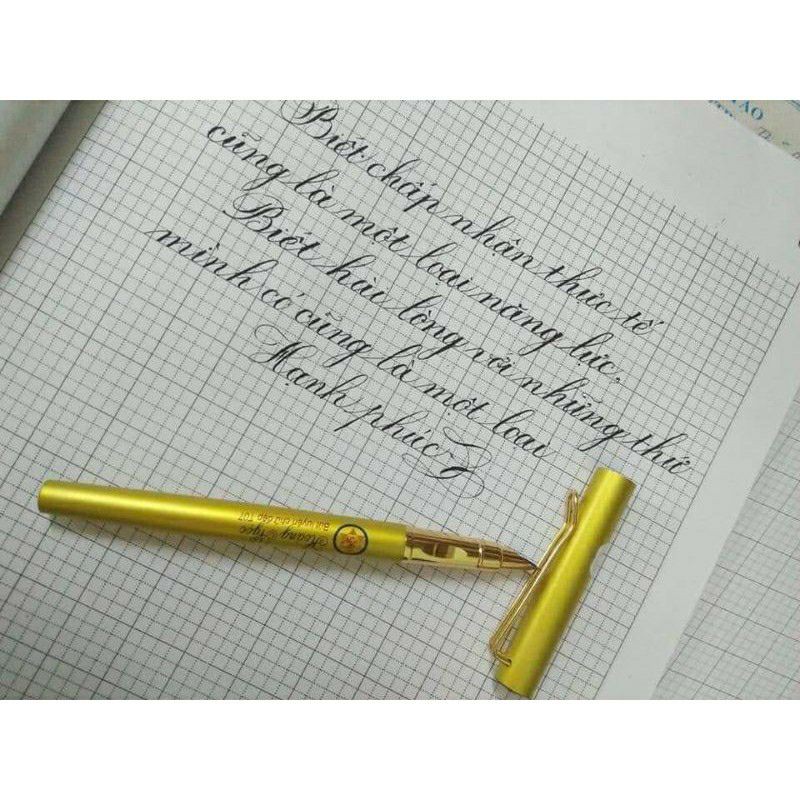 Biết chấp nhận thực tế
cũng là một loại năng lực,
Biết hài lòng với những thứ
mình có cũng là một loại
Hạnh phúc
Hoàng Ngọc
Bút luyện chữ đẹp T07